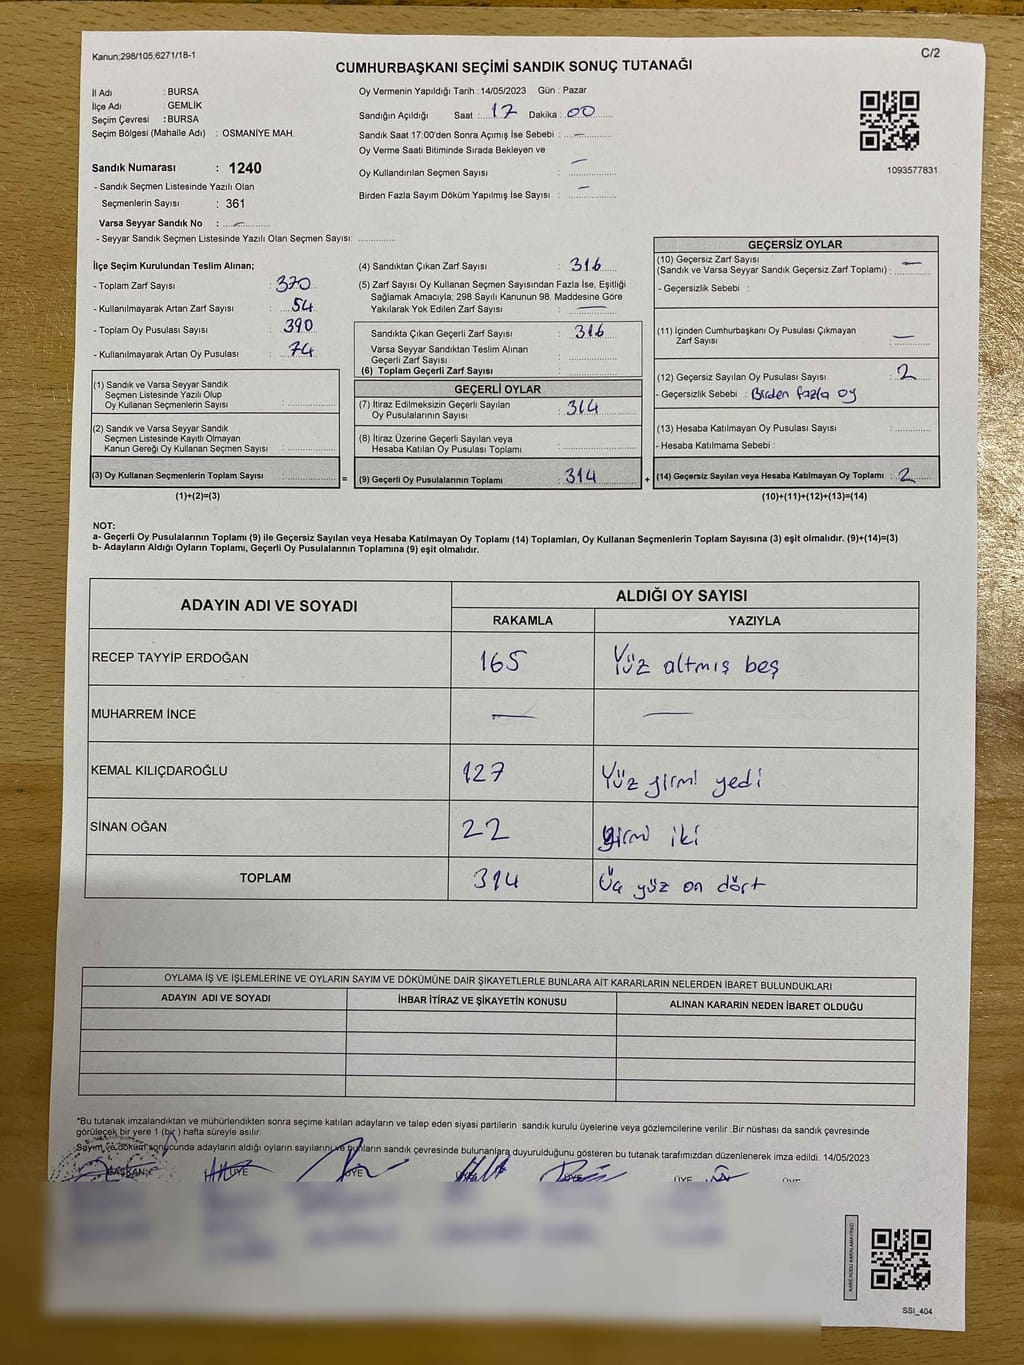 Kanun;298/105,6271/18-1
C/2
CUMHURBAŞKANI SEÇİMİ SANDIK SONUÇ TUTANAĞI
İl Adı : BURSA
İlçe Adı : GEMLİK
Seçim Çevresi : BURSA
Seçim Bölgesi (Mahalle Adı) : OSMANİYE MAH.
Sandık Numarası : 1240
- Sandık Seçmen Listesinde Yazılı Olan
Seçmenlerin Sayısı : 361
Varsa Seyyar Sandık No : —
- Seyyar Sandık Seçmen Listesinde Yazılı Olan Seçmen Sayısı:
Oy Vermenin Yapıldığı Tarih : 14/05/2023 Gün : Pazar
Sandığın Açıldığı Saat : 17 Dakika : 00
Sandık Saat 17:00'den Sonra Açımış İse Sebebi : —
Oy Verme Saati Bitiminde Sırada Bekleyen ve
Oy Kullandırılan Seçmen Sayısı : —
Birden Fazla Sayım Döküm Yapılmış İse Sayısı : —
1093577831
İlçe Seçim Kurulundan Teslim Alınan;
- Toplam Zarf Sayısı : 370
- Kullanılmayarak Artan Zarf Sayısı : 54
- Toplam Oy Pusulası Sayısı : 390
- Kullanılmayarak Artan Oy Pusulası : 74
(1) Sandık ve Varsa Seyyar Sandık
Seçmen Listesinde Yazılı Olup
Oy Kullanan Seçmenlerin Sayısı :
(2) Sandık ve Varsa Seyyar Sandık
Seçmen Listesinde Kayıtlı Olmayan
Kanun Gereği Oy Kullanan Seçmen Sayısı :
(3) Oy Kullanan Seçmenlerin Toplam Sayısı :
(1)+(2)=(3)
=
(4) Sandıktan Çıkan Zarf Sayısı : 316
(5) Zarf Sayısı Oy Kullanan Seçmen Sayısından Fazla İse, Eşitliği
Sağlamak Amacıyla; 298 Sayılı Kanunun 98. Maddesine Göre
Yakılarak Yok Edilen Zarf Sayısı : —
Sandıkta Çıkan Geçerli Zarf Sayısı : 316
Varsa Seyyar Sandıktan Teslim Alınan
Geçerli Zarf Sayısı :
(6) Toplam Geçerli Zarf Sayısı :
GEÇERLİ OYLAR
(7) İtiraz Edilmeksizin Geçerli Sayılan
Oy Pusulalarının Sayısı : 314
(8) İtiraz Üzerine Geçerli Sayılan veya
Hesaba Katılan Oy Pusulaları Toplamı :
(9) Geçerli Oy Pusulalarının Toplamı : 314
+
GEÇERSİZ OYLAR
(10) Geçersiz Zarf Sayısı
(Sandık ve Varsa Seyyar Sandık Geçersiz Zarf Toplamı) : —
- Geçersizlik Sebebi :
(11) İçinden Cumhurbaşkanı Oy Pusulası Çıkmayan
Zarf Sayısı : —
(12) Geçersiz Sayılan Oy Pusulası Sayısı : 2
- Geçersizlik Sebebi : Birden fazla oy
(13) Hesaba Katılmayan Oy Pusulası Sayısı :
- Hesaba Katılmama Sebebi :
(14) Geçersiz Sayılan veya Hesaba Katılmayan Oy Toplamı : 2
(10)+(11)+(12)+(13)=(14)
NOT:
a- Geçerli Oy Pusulalarının Toplamı (9) ile Geçersiz Sayılan veya Hesaba Katılmayan Oy Toplamı (14) Toplamları, Oy Kullanan Seçmenlerin Toplam Sayısına (3) eşit olmalıdır. (9)+(14)=(3)
b- Adayların Aldığı Oyların Toplamı, Geçerli Oy Pusulalarının Toplamına (9) eşit olmalıdır.
ADAYIN ADI VE SOYADI
ALDIĞI OY SAYISI
RAKAMLA YAZIYLA
RECEP TAYYİP ERDOĞAN 165 Yüz altmış beş
MUHARREM İNCE — —
KEMAL KILIÇDAROĞLU 127 Yüz yirmi yedi
SİNAN OĞAN 22 yirmi iki
TOPLAM 314 Üç yüz on dört
OYLAMA İŞ VE İŞLEMLERİNE VE OYLARIN SAYIM VE DÖKÜMÜNE DAİR ŞİKAYETLERLE BUNLARA AİT KARARLARIN NELERDEN İBARET BULUNDUKLARI
ADAYIN ADI VE SOYADI İHBAR İTİRAZ VE ŞİKAYETİN KONUSU ALINAN KARARIN NEDEN İBARET OLDUĞU
*Bu tutanak imzalandıktan ve mühürlendikten sonra seçime katılan adayların ve talep eden siyasi partilerin sandık kurulu üyelerine veya gözlemcilerine verilir .Bir nüshası da sandık çevresinde
görülecek bir yere 1 (bir ) hafta süreyle asılır.
Sayım ve döküm sonucunda adayların aldığı oyların sayılarını ve bunların sandık çevresinde bulunanlara duyurulduğunu gösteren bu tutanak tarafımızdan düzenlenerek imza edildi. 14/05/2023
BAŞKAN ÜYE ÜYE ÜYE ÜYE
KAREKODU KARALAMAYINIZ!
SSI_404